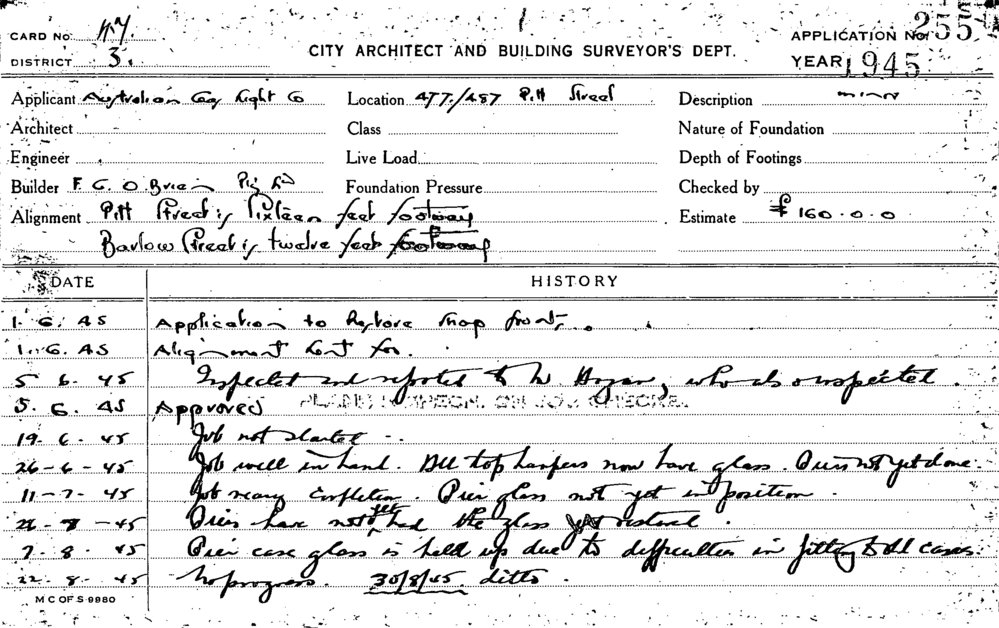 CARD No. H7
DISTRICT 3.
CITY ARCHITECT AND BUILDING SURVEYOR'S DEPT.
APPLICATION No. 255
YEAR 1945
Applicant Australian Gas Light Co
Location 477/487 Pitt Street
Description minor
Architect
Class
Nature of Foundation
Engineer
Live Load
Depth of Footings
Builder F. G. O Brien Pty Ltd
Foundation Pressure
Checked by
Alignment Pitt Street is Sixteen feet footway
Estimate £ 160.0.0
Barlow Street is twelve feet footway
DATE HISTORY
1. 6. 45 Application to Restore shop front
1. 6. 45 Alignment sent for.
5 6. 45 Inspected and reported to Mr Hogan, who also inspected.
5. 6. 45 Approved PLANS & SPECN. ON JOB CHECKED.
19. 6. 45 Job not started
26-6-45 Job well in hand. All top hampers now have glass. Piers not yet done.
11-7-45 Job nearing completion. Pier glass not yet in position.
-7-45 Piers have not yet had the glass restored.
7. 8. 45 Pier case glass is held up due to difficulties in fitting to old cases.
22. 8. 45 No progress. 30/8/45. ditto.
M C OF S 9980